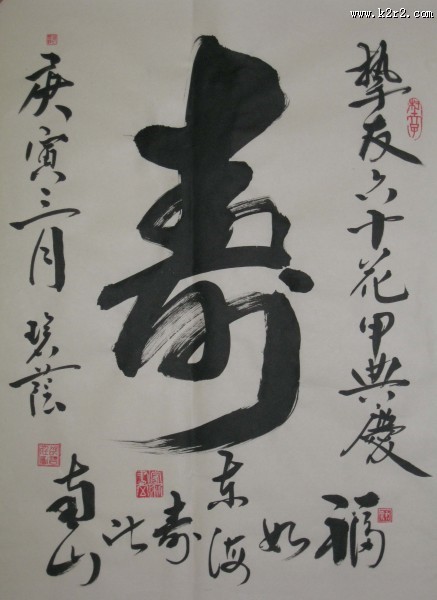 www.k2r2.com
挚友六十花甲典慶
寿
福如东海寿比南山
庚寅三月